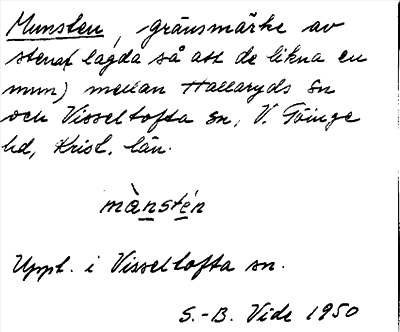 Munsten, gränsmärke av
stenar lagda så att de likna en
mun) mellan Hallaryds sn
och Visseltofta sn, V. Göinge
hd, Krist. län.
mànstén
Uppt. i Visseltofta sn.
S.-B. Vide 1950